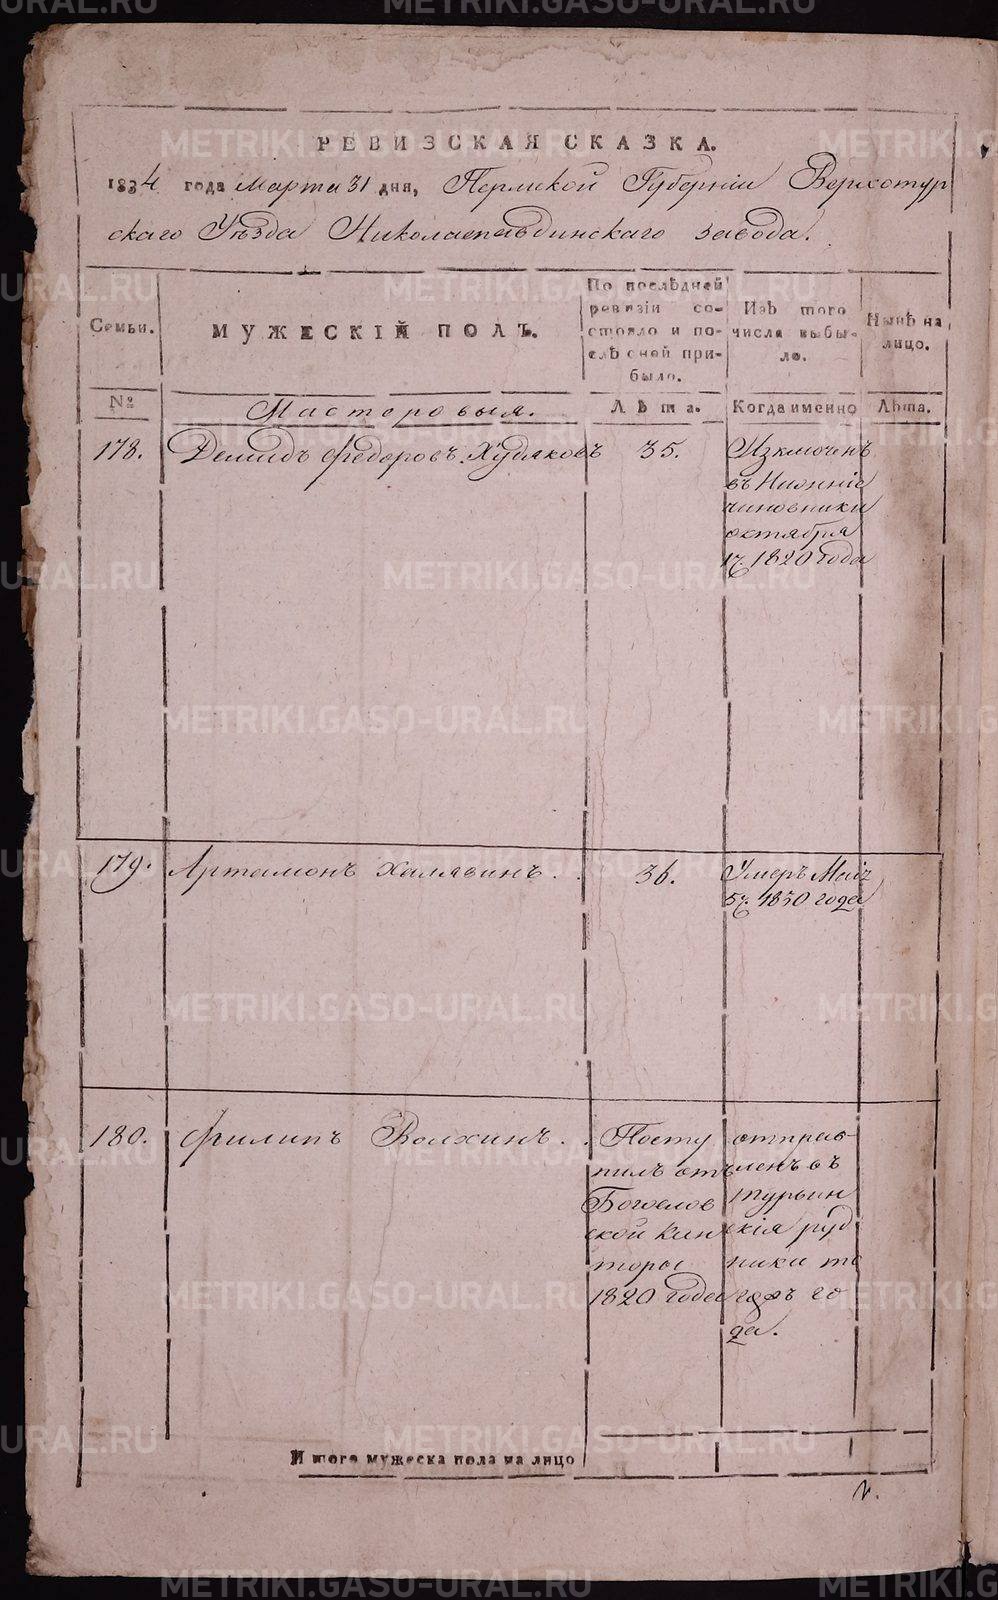 РЕВИЗСКАЯ СКАЗКА.
1834 года Марта 31 дня, Пермской Губернии Верхотур
скаго Уѣзда Николаепавдинскаго завода.
Семьи.
МУЖЕСКІЙ ПОЛЪ.
По послѣдней
ревизіи со-
стояло и по-
слѣ оней при-
было.
Изъ того
числа выбы-
ло.
Нынѣ на
лицо.
№
Мастеровыя.
Лѣта.
Когда именно
Лѣта.
178.
Демидъ Федоровъ Худяковъ
35.
Изключенъ
въ Нижніе
чиновники
октября
17. 1820 года
179.
Артамонъ Халявинъ.
36.
Умеръ Маія
5ч. 1830 года
180.
Филипъ Волхинъ.
Посту
пилъ отъ
Богослов
ской кан
торы
1820 года
отправ
ленъ въ
Турьин
скія руд
ники то
гожъ го
да.
Итого мужеска пола на лицо
METRIKI.GASO-URAL.RU